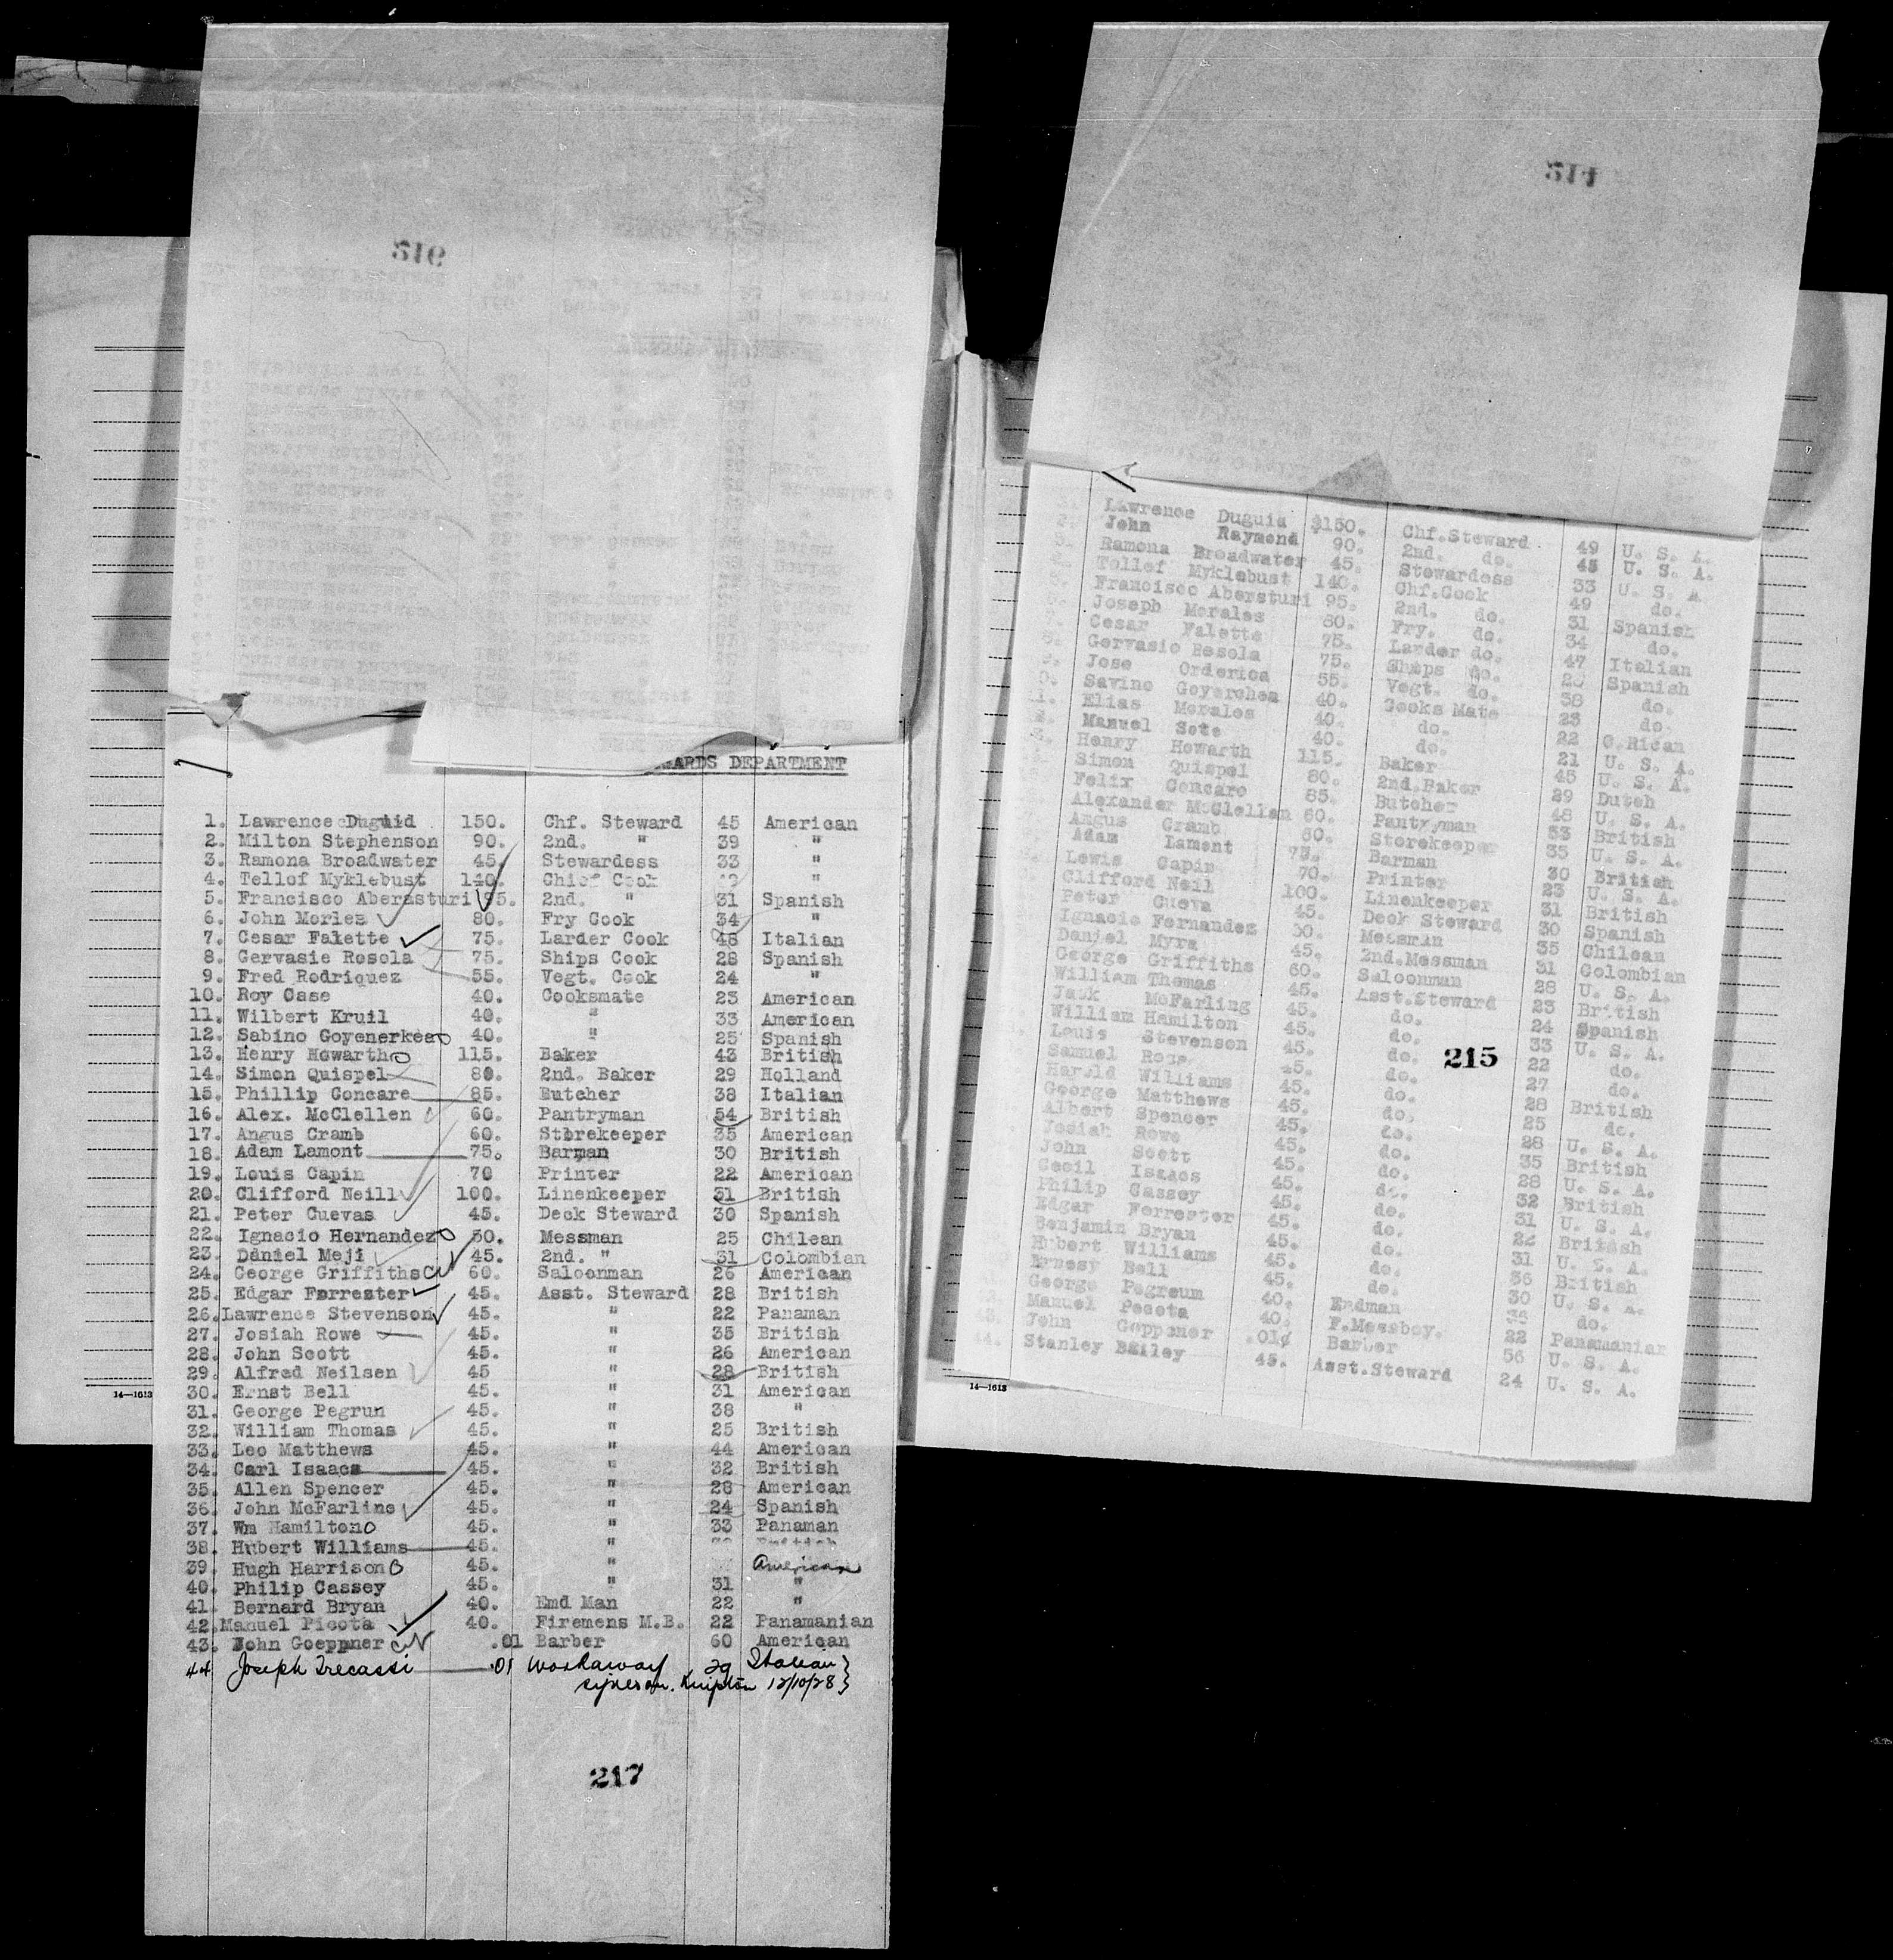 216
ARDS DEPARTMENT
1. Lawrence Duguid 150. Chf. Steward 45 American
2. Milton Stephenson 90. 2nd. " 39 "
3. Ramona Broadwater 45. Stewardess 33 "
4. Tellof Myklebust 140. Chief Cook "
5. Francisco Aberasturi 95. 2nd. " 31 Spanish
6. John Morles 80. Fry Cook 34 "
7. Cesar Falette 75. Larder Cook 48 Italian
8. Gervasie Rosola 75. Ships Cook 28 Spanish
9. Fred Rodriquez 55. Vegt. Cook 24 "
10. Roy Case 40. Cooksmate 23 American
11. Wilbert Kruil 40. " 33 American
12. Sabino Goyenerkea 40. " 25 Spanish
13. Henry Howarth 115. Baker 43 British
14. Simon Quispel 80. 2nd. Baker 29 Holland
15. Phillip Concare 85. Butcher 38 Italian
16. Alex. McClellen 60. Pantryman 54 British
17. Angus Cramb 60. Storekeeper 35 American
18. Adam Lamont 75. Barman 30 British
19. Louis Capin 70 Printer 22 American
20. Clifford Neill 100. Linenkeeper 31 British
21. Peter Cuevas 45. Deck Steward 30 Spanish
22. Ignacio Hernandez 50. Messman 25 Chilean
23. Daniel Meji 45. 2nd. " 31 Colombian
24. George Griffiths 60. Saloonman 26 American
25. Edgar Forrester 45. Asst. Steward 28 British
26. Lawrence Stevenson 45. " 22 Panaman
27. Josiah Rowe 45. " 35 British
28. John Scott 45. " 26 American
29. Alfred Neilsen 45 " 28 British
30. Ernst Bell 45. " 31 American
31. George Pegrun 45. " 38 "
32. William Thomas 45. " 25 British
33. Leo Matthews 45. " 44 American
34. Carl Isaacs 45. " 32 British
35. Allen Spencer 45. " 28 American
36. John McFarline 45. " 24 Spanish
37. Wm Hamilton 45. " 33 Panaman
38. Hubert Williams 45. "
39. Hugh Harrison 45. " American
40. Philip Cassey 45. " 31 "
41. Bernard Bryan 40. Emd Man 22 "
42. Manuel Picota 40. Firemens M.B. 22 Panamanian
43. John Goeppner .01 Barber 60 American
44 Joseph Trecassi .01 Workaway 29 Italian
12/10/28
217
14—1613
314
Lawrence Duguid $150. Chf.Steward 49 U. S. A.
John Raymond 90. 2nd. do. 45 U. S. A.
Ramona Broadwater 45. Stewardess 33 U. S. A.
Tollef Myklebust 140. Chf.Cook 49 do.
Francisco Abersturi 95. 2nd. do. 31 Spanish
Joseph Morales 80. Fry. do. 34 do.
Cesar Falette 75. Larder do. 47 Italian
Gervasio Resola 75. Ships do. Spanish
Jose Orderica 55. Vegt. do. 38 do.
Savino Goyarchea 40. Cooks Mate 23 do.
Elias Morales 40. do. 22 C.Rican
Manuel Soto 40. do. 21 U. S. A.
Henry Howarth 115. Baker 45 U. S. A.
Simon Quispel 80. 2nd.Baker 29 Dutch
Felix Concaro 85. Butcher 48 U. S. A.
Alexander McClellan 60. Pantryman 53 British
Angus Cramb 60. Storekeeper 35 U. S. A.
Adam Lament 75. Barman 30 British
Lewis Capin 70. Printer 23 U. S. A.
Clifford Neil 100. Linenkeeper 31 British
Peter Cueva 45. Deck Steward 30 Spanish
Ignacio Fernandez 50. Messman 35 Chilean
Daniel Myra 45. 2nd.Messman 31 Colombian
George Griffiths 60. Saloonman 28 U. S. A.
William Thomas 45. Asst.Steward 23 British
Jack McFarling 45. do. 24 Spanish
William Hamilton 45. do. 33 U. S. A.
Louis Stevenson 45. do. 22 do.
Samuel Rose 45. do. 27 do.
Harold Williams 45. do. 28 British
George Matthews 45. do. 25 do.
Albert Spencer 45. do. 28 U. S. A.
Josiah Rowe 45. do. 35 British
John Scott 45. do. 28 U. S. A.
Cecil Isaacs 45. do. 32 British
Philip Cassey 45. do. 31 U. S. A.
Edgar Forrester 45. do. 22 British
Benjamin Bryan 45. do. 31 U. S. A.
Hubert Williams 45. do. 36 British
Ernest Bell 45. do. 30 U. S. A.
George Pegreum 40. Endman do.
Manuel Pecota 40. F.Messboy. 22 Panamanian
John Goppner .01¢ Barber 56 U. S. A.
44. Stanley Bailey 45. Asst.Steward 24 U. S. A.
215
14—1613